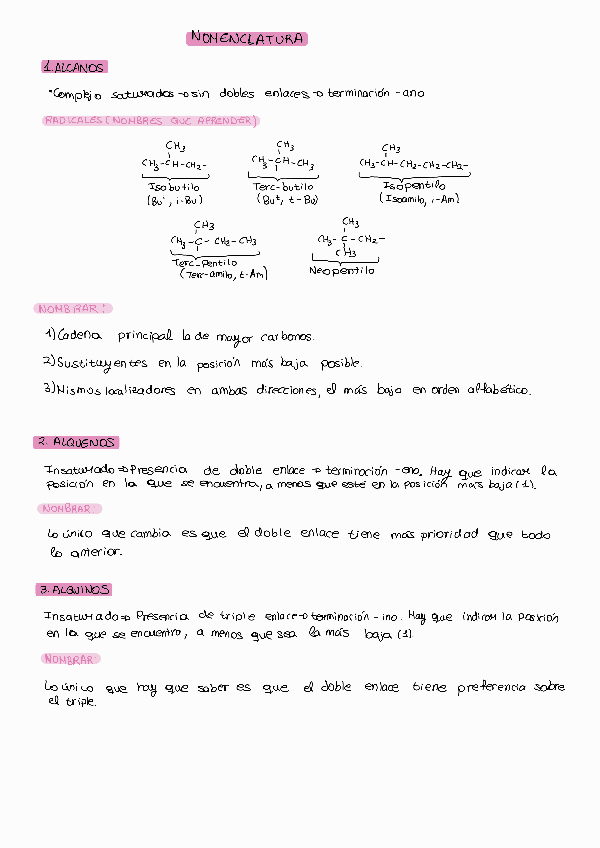 NOMENCLATURA
1. ALCANOS
*Complejo saturados → sin dobles enlaces → terminación -ano
RADICALES (NOMBRES QUE APRENDER)
CH3 CH3 CH3
CH3-CH-CH2- CH3-CH-CH3 CH3-CH-CH2-CH2-CH2-
Isobutilo Terc-butilo Isopentilo
(Buⁱ, i-Bu) (Buᵗ, t-Bu) (Isoamilo, i-Am)
CH3 CH3
CH3-C-CH2-CH3 CH3-C-CH2-
CH3
Terc-pentilo Neopentilo
(Terc-amilo, t-Am)
NOMBRAR:
1) Cadena principal la de mayor carbonos.
2) Sustituyentes en la posición más baja posible.
3) Mismos localizadores en ambas direcciones, el más bajo en orden alfabético.
2. ALQUENOS
Insaturado → Presencia de doble enlace → terminación -eno. Hay que indicar la
posición en la que se encuentra, a menos que esté en la posición más baja (1).
NOMBRAR:
Lo único que cambia es que el doble enlace tiene más prioridad que todo
lo anterior.
3. ALQUINOS
Insaturado → Presencia de triple enlace → terminación -ino. Hay que indicar la posición
en la que se encuentro, a menos que sea la más baja (1).
NOMBRAR:
Lo único que hay que saber es que el doble enlace tiene preferencia sobre
el triple.